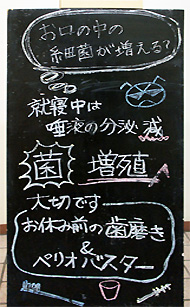 お口の中の
細菌が増える?
就寝中は
唾液の分泌減
菌増殖
大切です
お休み前の歯磨き
&
ペリオバスター